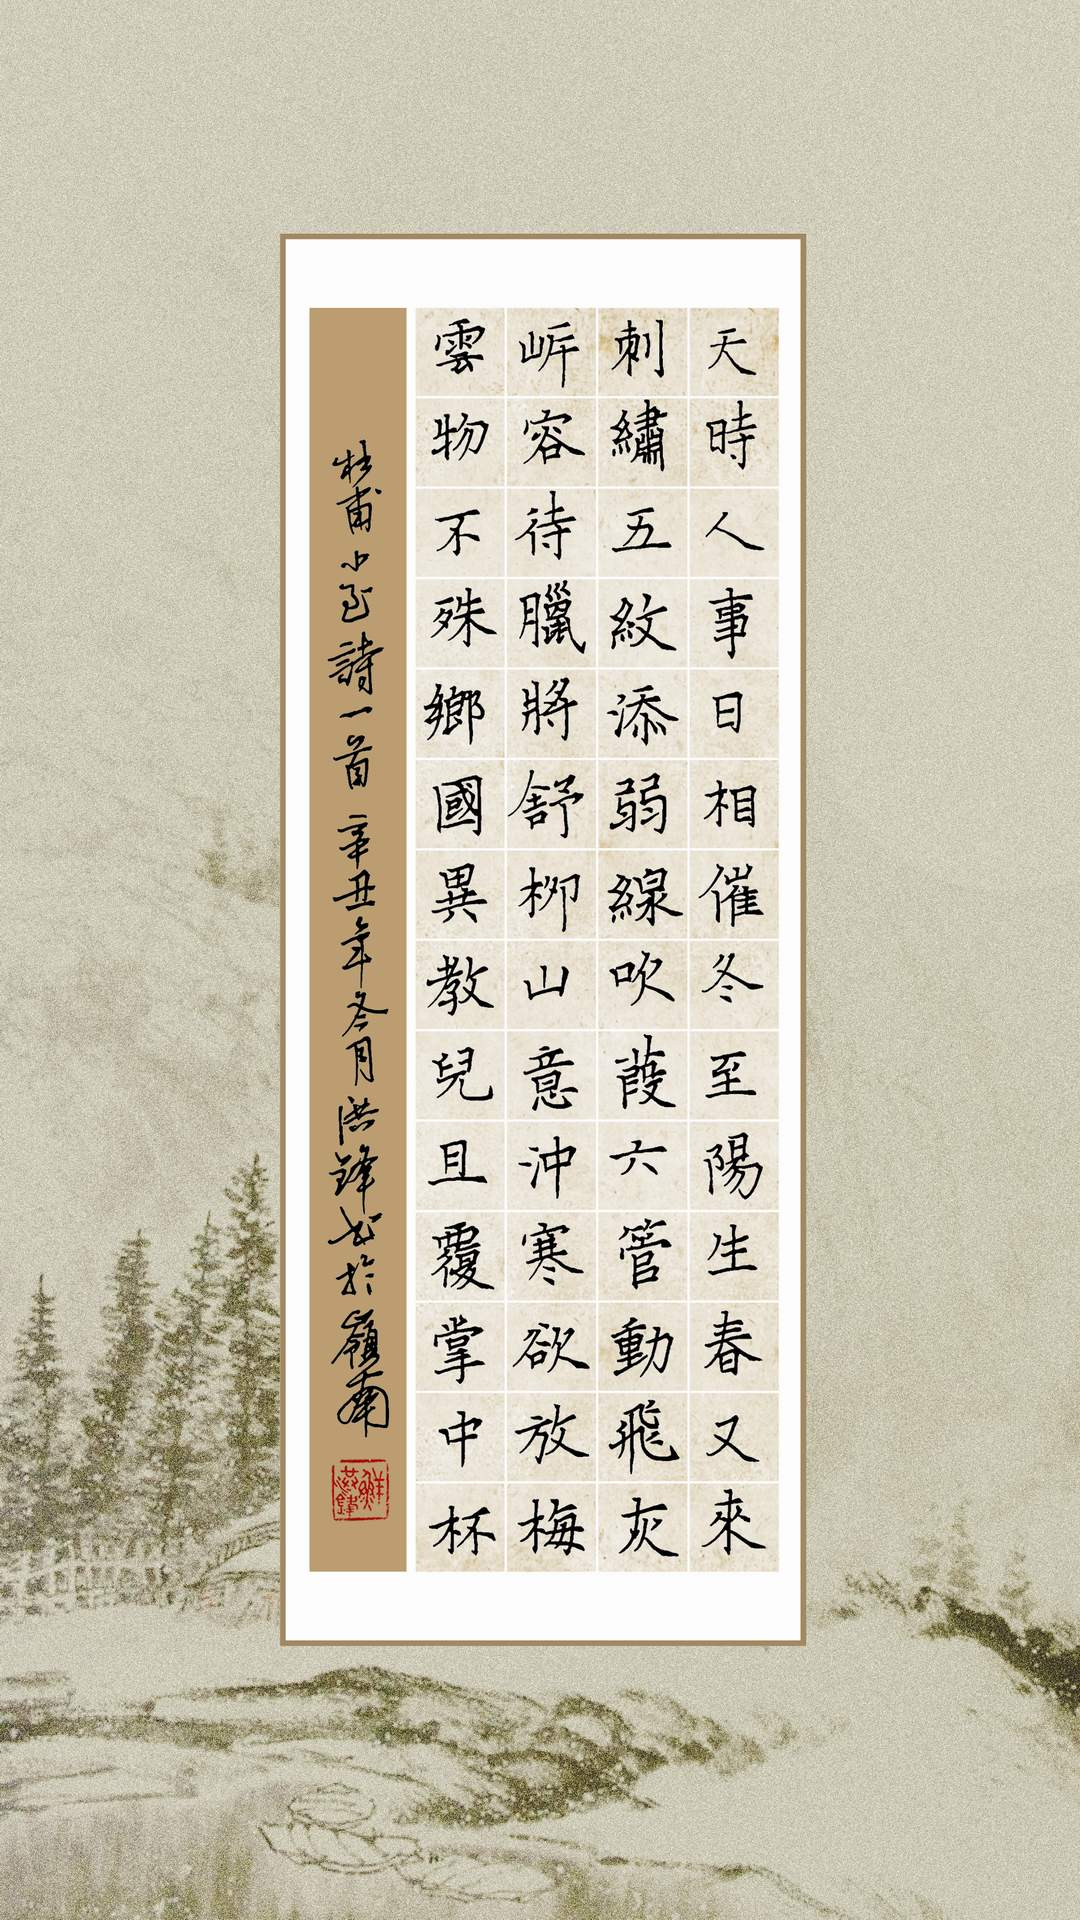 天時人事日相催冬至陽生春又來
刺繡五紋添弱線吹葭六管動飛灰
岸容待臘將舒柳山意沖寒欲放梅
雲物不殊鄉國異教兒且覆掌中杯
杜甫小至詩一首辛丑年冬月洪鋒書於嶺南
鮮洪鋒